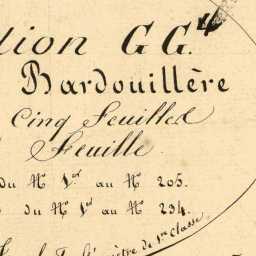 tion G G.
Bardouillère
Cinq Feuilles
Feuille.
du Nº 1er au Nº 205.
du Nº 1er au Nº 234.
mètre de 1re Classe